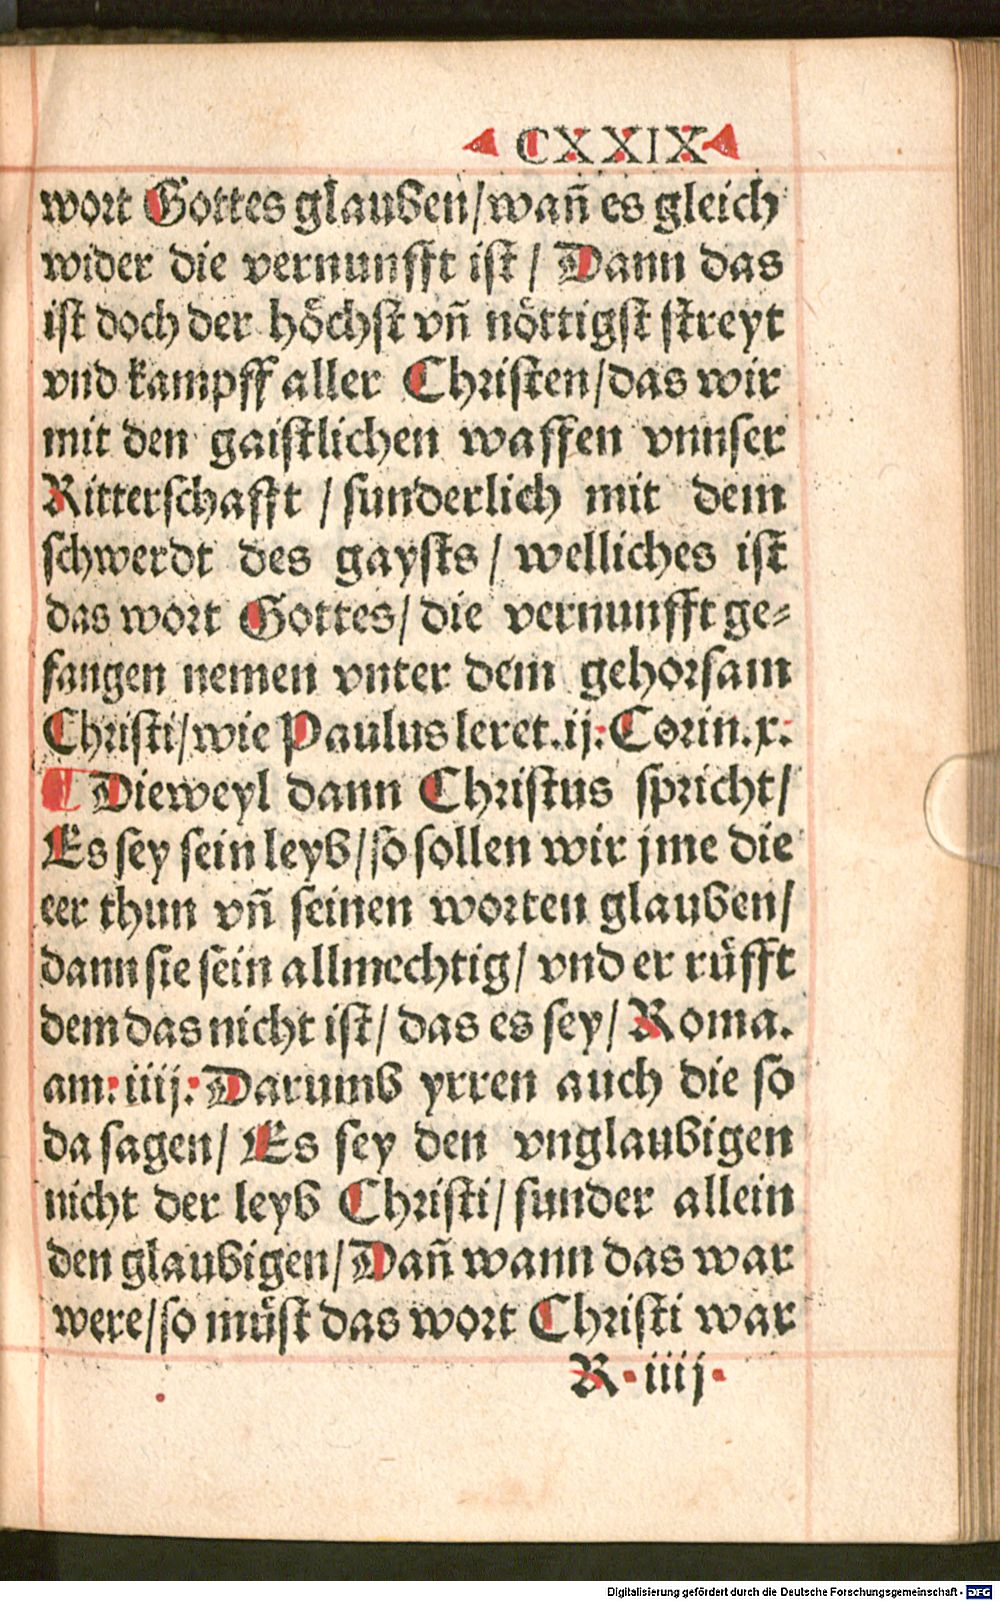 CXXIX
wort Gottes glauben/wañ es gleich
wider die vernunfft ist / Dann das
ist doch der höchst vñ nöttigst streyt
vnd kampff aller Christen/das wir
mit den gaistlichen waffen vnnser
Ritterschafft / sunderlich mit dem
schwerdt des gaysts / welliches ist
das wort Gottes/ die vernunfft ge-
fangen nemen vnter dem gehorsam
Christi/wie Paulus leret.ij: Corin.x:
¶ Dieweyl dann Christus spricht/
Es sey sein leyb/so sollen wir jme die
eer thun vñ seinen worten glauben/
dann sie sein allmechtig/ vnd er rüfft
dem das nicht ist/ das es sey/ Roma.
am: iiij: Darumb yrren auch die so
da sagen/ Es sey den vnglaubigen
nicht der leyb Christi/ sunder allein
den glaubigen/Dañ wann das war
were/so müst das wort Christi war
R iiij
Digitalisierung gefördert durch die Deutsche Forschungsgemeinschaft - DFG